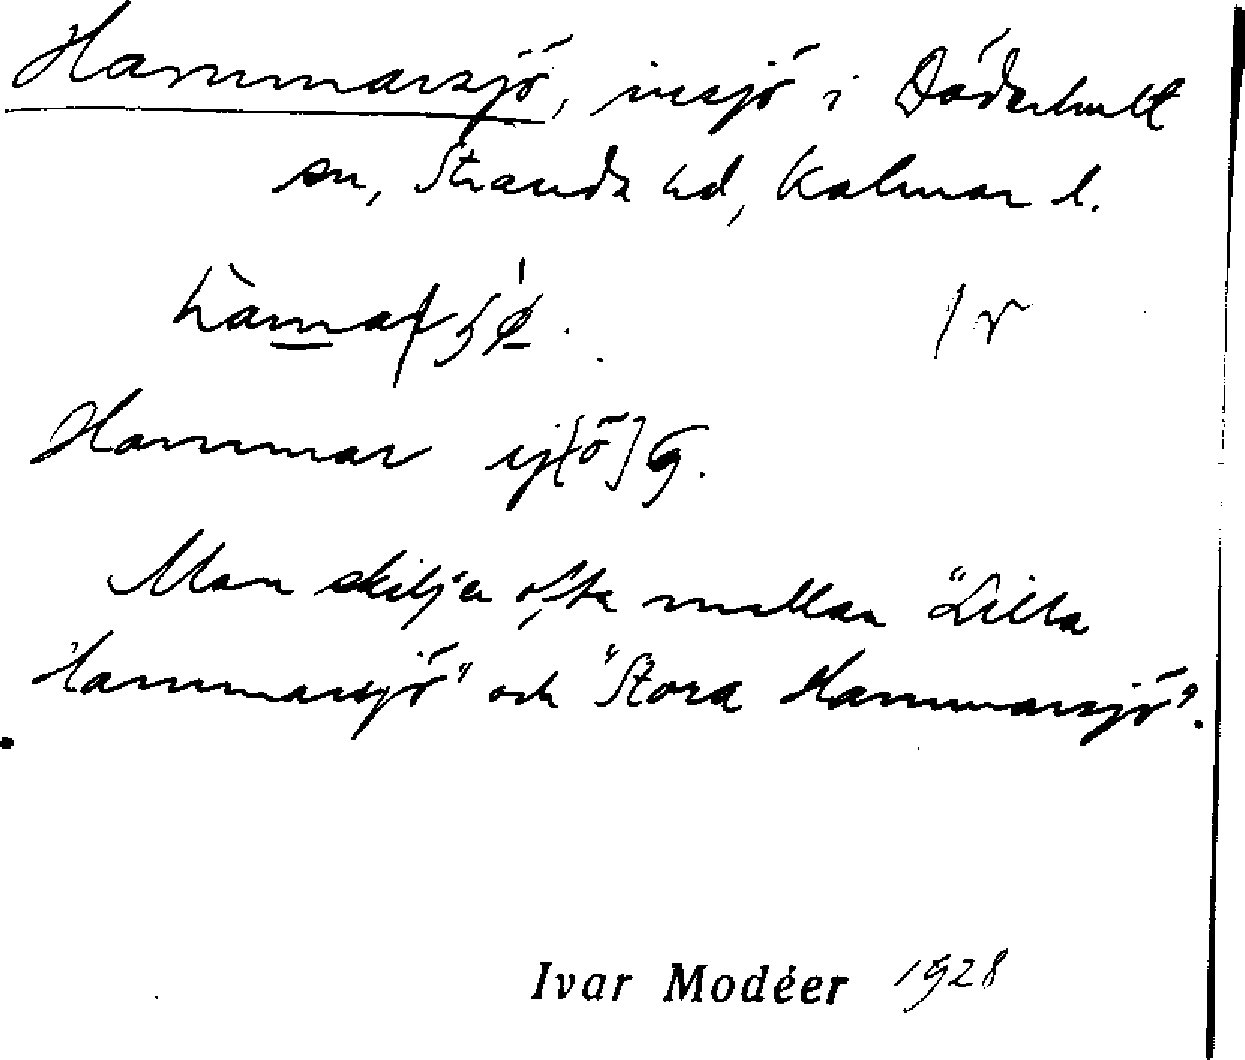 Hammarsjö, insjö i Döderhult
sn, Stranda hd, Kalmar l.
Hammar sj[ö] G.
Man skiljer ofta mellan "Lilla
Hammarsjö" och "Stora Hammarsjö".
Ivar Modéer 1928